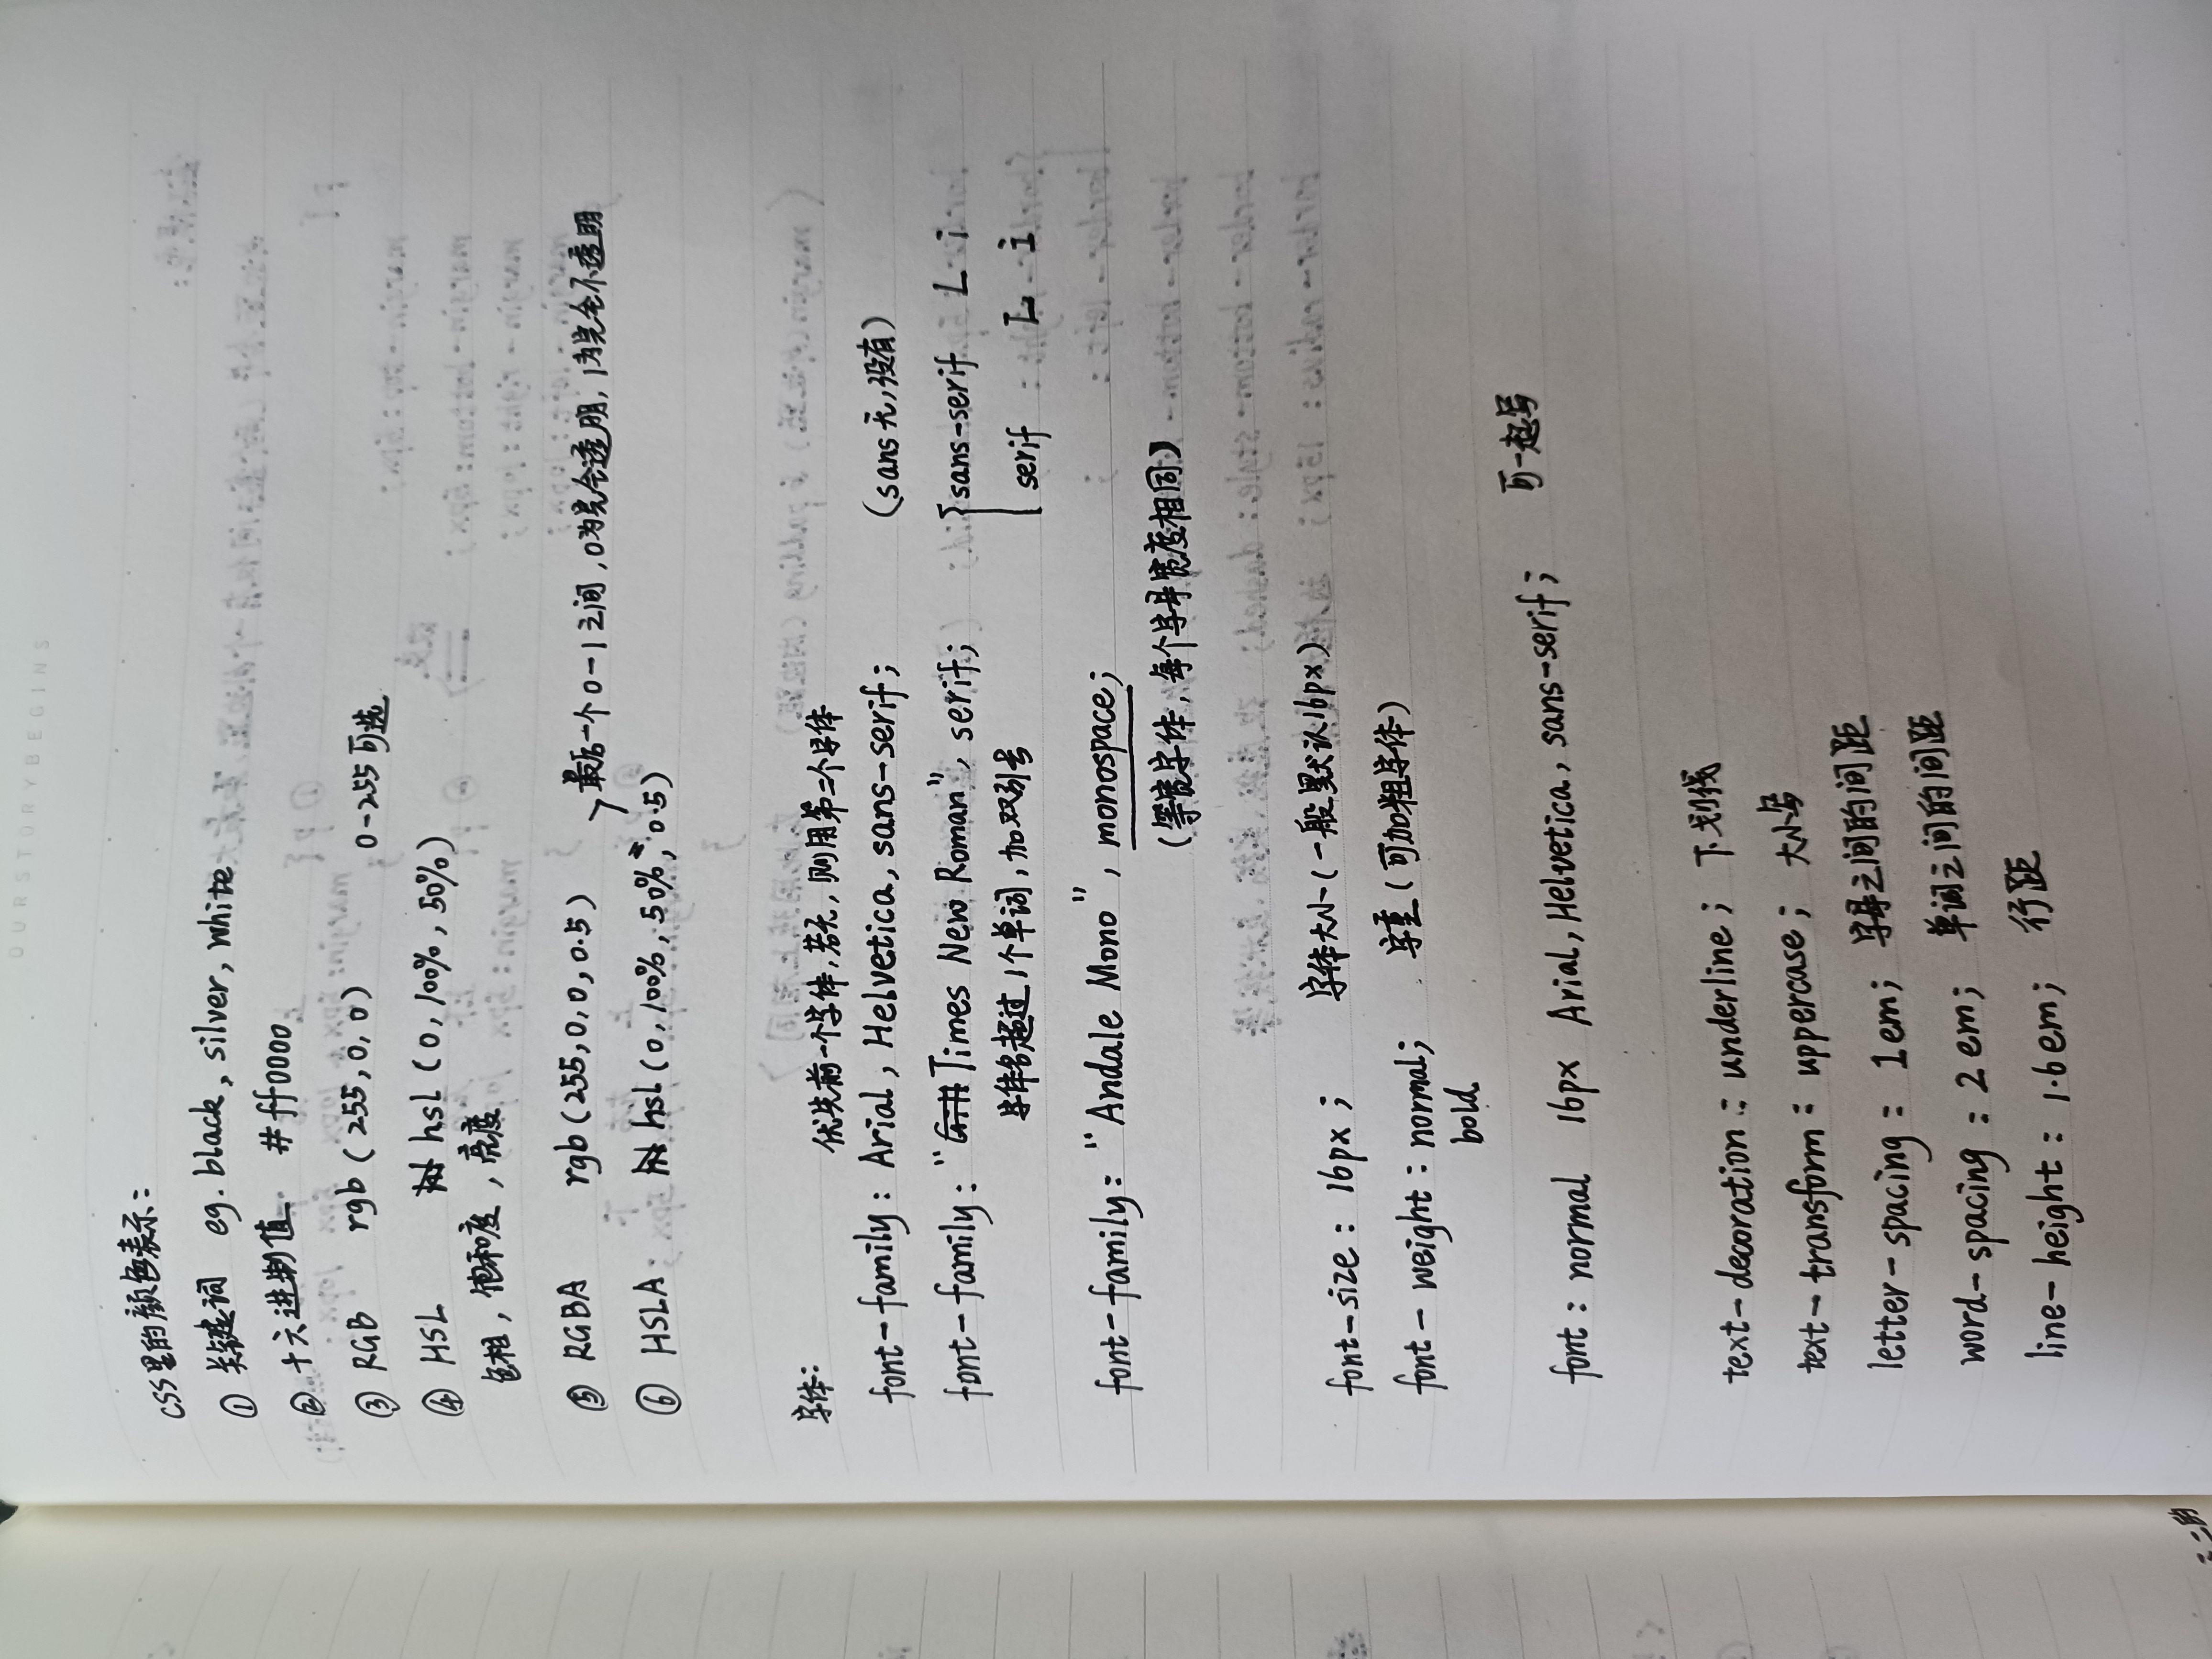 OURSTORYBEGINS
CSS里的颜色表示:
① 关键词 eg. black, silver, white
② 十六进制值 #ff0000
③ RGB rgb(255,0,0) 0-255可选
④ HSL hsl(0,100%,50%)
色相,饱和度,亮度
⑤ RGBA rgb(255,0,0,0.5)
最后一个0-1之间,0为完全透明,1为完全不透明
⑥ HSLA hsl(0,100%,50%,0.5)
字体:
优先前一个字体,若无,则用第二个字体
font-family: Arial, Helvetica, sans-serif; (sans无,没有)
font-family: "Times New Roman", serif; sans-serif L i
字体名超过1个单词,加双引号 serif L i
font-family: "Andale Mono", monospace;
(等宽字体,每个字母宽度相同)
font-size: 16px; 字体大小(一般默认16px)
font-weight: normal; 字重(可加粗字体)
bold
可一起写
font: normal 16px Arial, Helvetica, sans-serif;
text-decoration: underline; 下划线
text-transform: uppercase; 大小写
letter-spacing: 1em; 字母之间的间距
word-spacing: 2em; 单词之间的间距
line-height: 1.6em; 行距